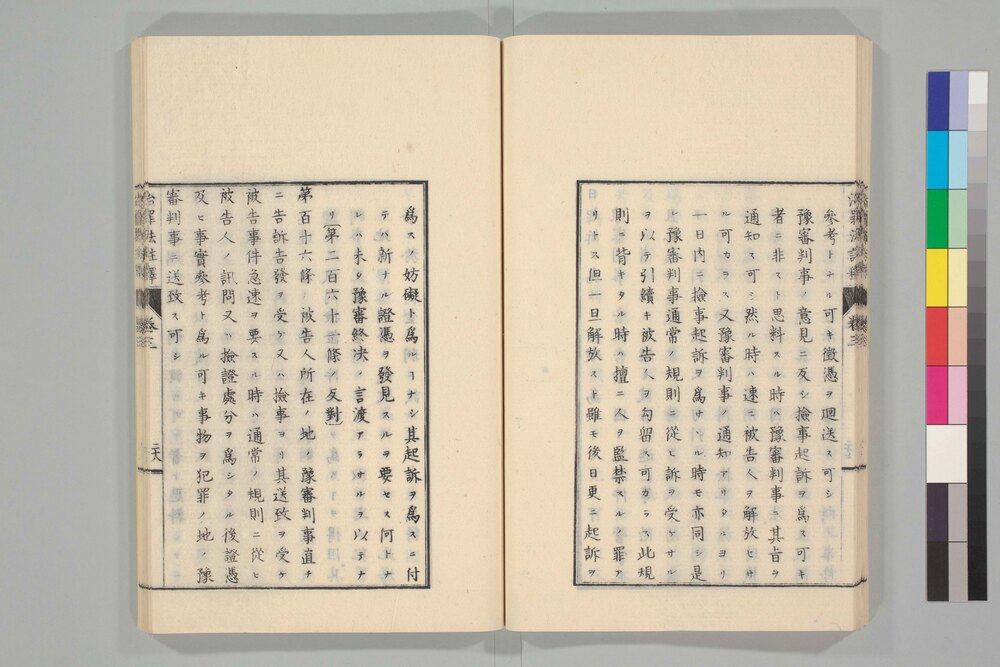 參考トナル可キ徴憑ヲ迴送ス可シ
豫審判事ノ意見ニ反シ撿事起訴ヲ爲ス可キ
者ニ非スト思料スル時ハ豫審判事ニ其旨ヲ
通知ス可シ然ル時ハ速ニ被告人ヲ解放セサ
ル可カラス又豫審判事ノ通知アリタルヨリ
一日内ニ撿事起訴ヲ爲サヽル時モ亦同シ是
レ豫審判事通常ノ規則ニ從ヒ訴ヲ受ケサル
ヲ以テ引續キ被告人ヲ勾留ス可カラス此規
則ニ背キタル時ハ擅ニ人ヲ監禁スルノ罪ア
リトス但一旦解放スト雖モ後日更ニ起訴ヲ
爲スノ妨礙ト爲ルヿナシ其起訴ヲ爲スニ付
テハ新ナル證憑ヲ發見スルヲ要セス何トナ
レハ未タ豫審終决ノ言渡アラサルヲ以テナ
リ(第二百六十一條ノ反對)
第百十六條 被告人所在ノ地ノ豫審判事直チ
ニ告訴告發ヲ受ケ又ハ撿事ヨリ其送致ヲ受ケ
被告事件急速ヲ要スル時ハ通常ノ規則ニ從ヒ
被告人ノ訊問又ハ撿證處分ヲ爲シタル後證憑
及ヒ事實參考ト爲ル可キ事物ヲ犯罪ノ地ノ豫
審判事ニ送致ス可シ
治罪法註釋 卷三